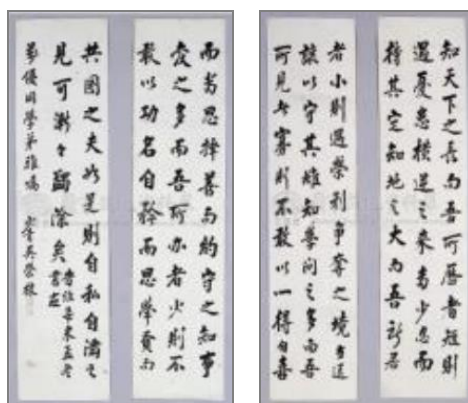 知天下之長而吾所歷者短則
遇憂患橫逆之來當少忍而
待其定知地之大而吾所居
者小則遇榮利爭奪之境當退
讓以守其雌知學問之多而吾
所見者寡則不敢以一得自喜
而當思擇善而約守之知事
變之多而吾所辦者少則不
敢以功名自矜而思舉賢而
共圖之夫如是則自私自滿之
見可漸々蠲除矣
同學弟雅囑